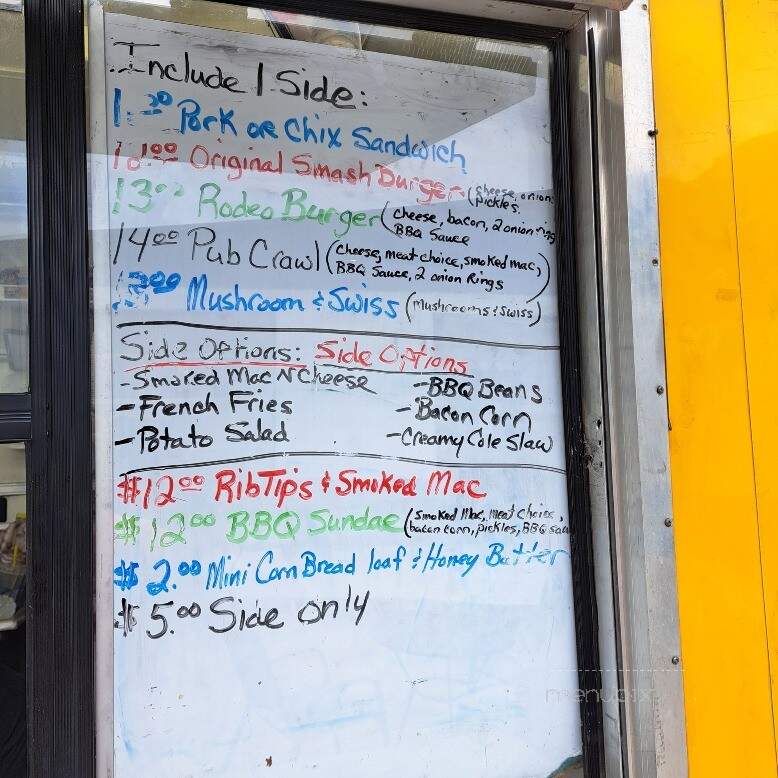 Include 1 Side:
Pork or Chix Sandwich
Original Smash Burger (cheese, onion,
pickles,
13.00 Rodeo Burger (cheese, bacon, 2 onion rings
BBQ Sauce
14.00 Pub Crawl (cheese, meat choice, smoked mac,
BBQ Sauce, 2 onion Rings)
Mushroom & Swiss (mushrooms & swiss)
Side Options: Side Options
-Smoked Mac N Cheese -BBQ Beans
-French Fries -Bacon Corn
-Potato Salad -Creamy Cole Slaw
$12.00 Rib Tips & Smoked Mac
$12.00 BBQ Sundae (smoked Mac, meat choice,
bacon corn, pickles, BBQ sau
$2.00 Mini Corn Bread loaf & Honey Butter
$5.00 Side only
menupix